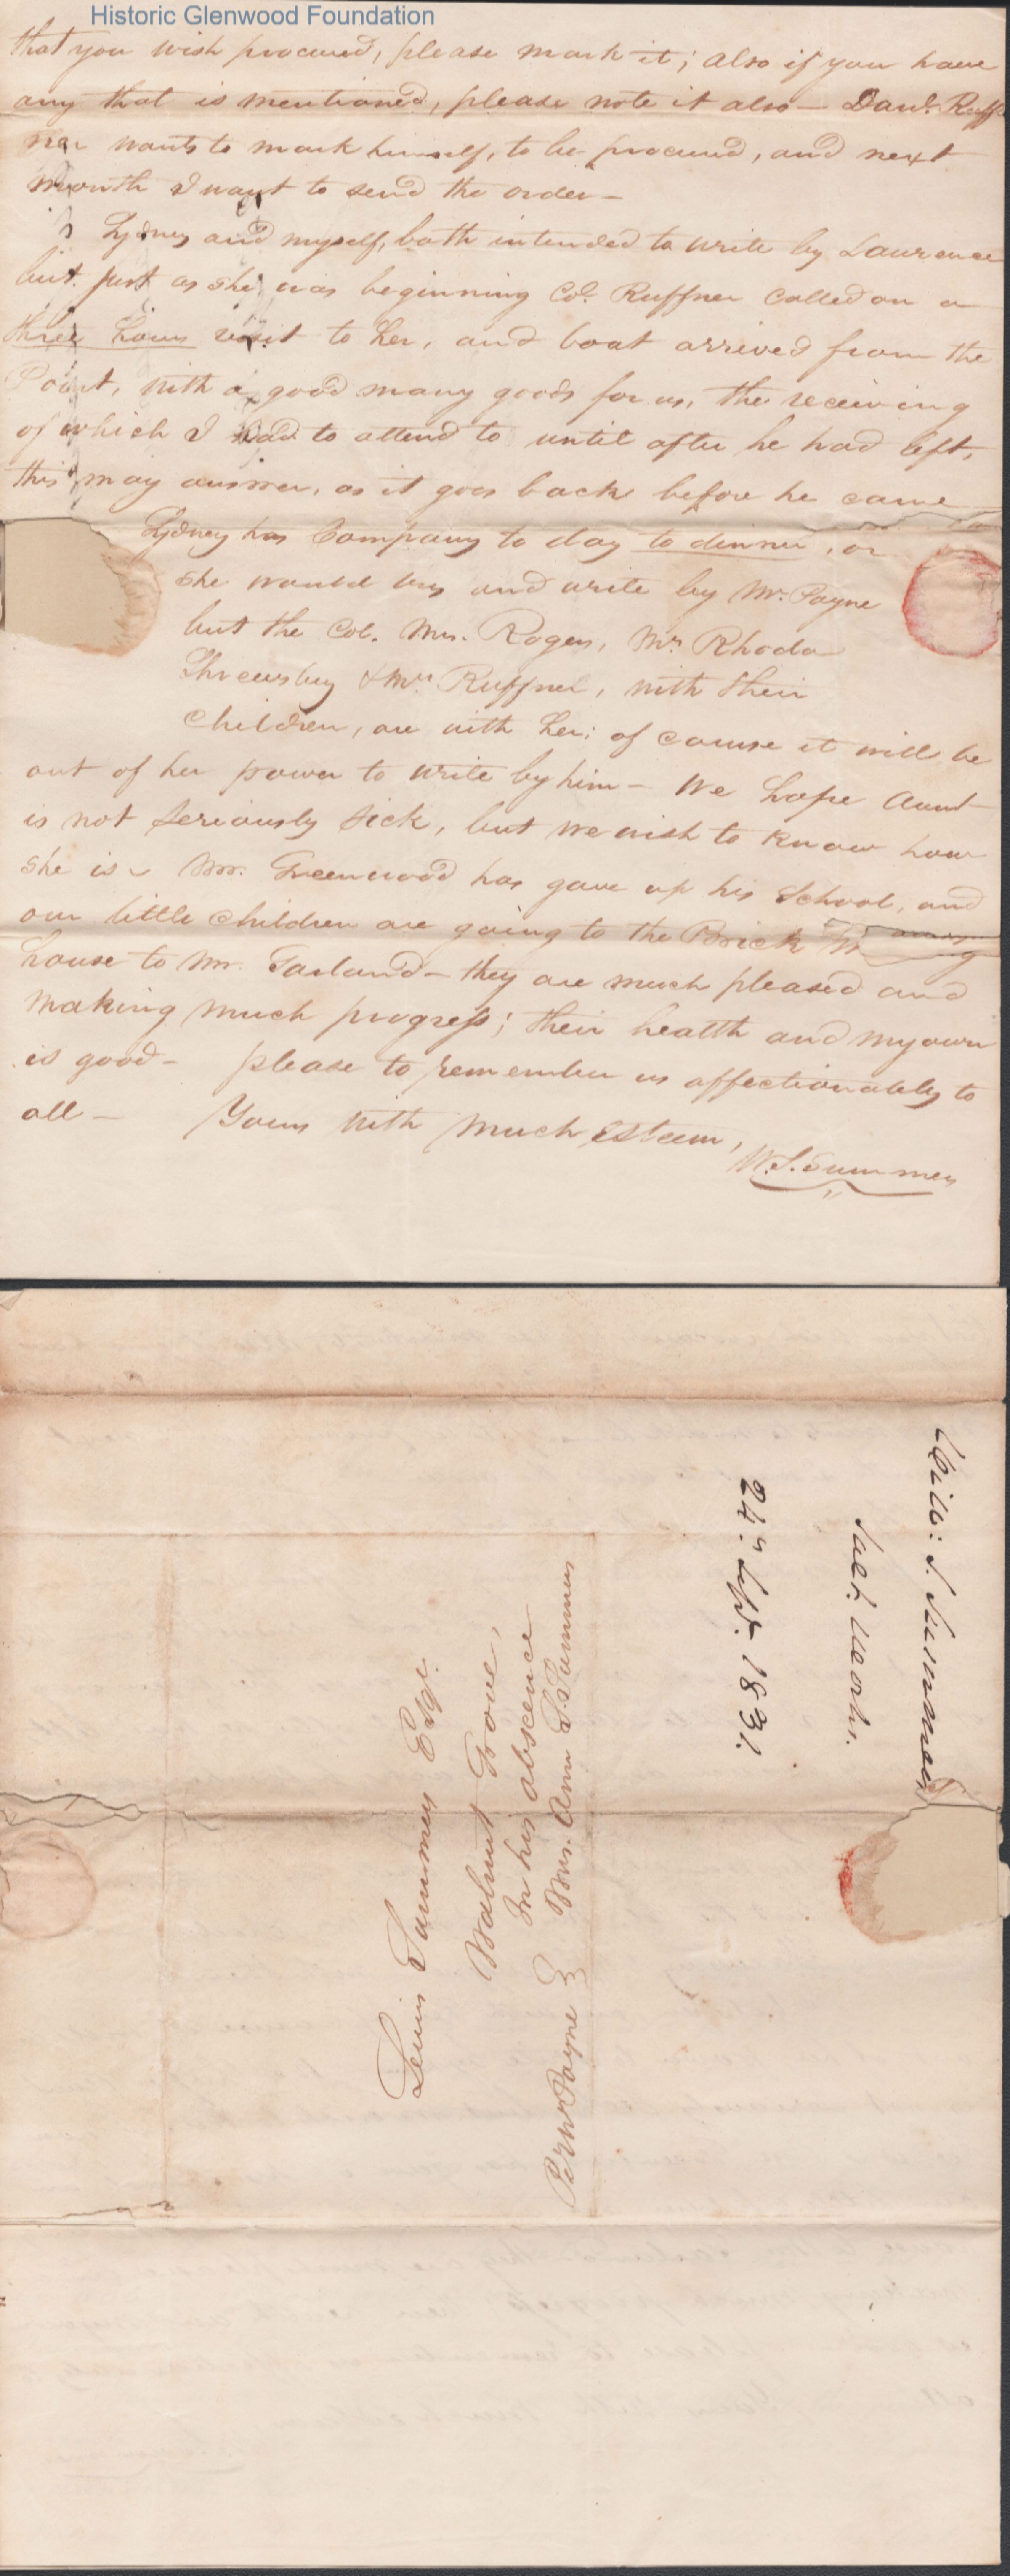 Historic Glenwood Foundation
that you wish procured, please mark it; also if you have
any that is mentioned, please note it also — Danl. Ruff
ner wants to mark himself, to be procured, and next
month I want to send the order —
Sydney and myself, both intended to write by Laurence
but just as she was beginning Col. Ruffner called on a
three hours visit to her, and boat arrived from the
Point, with a good many goods for us, the receiving
of which I had to attend to until after he had left,
this may answer, as it goes back before he came
Sydney has Company to day to dinner, or
she would try and write by Mr. Payne
but the Col. Mrs. Rogers, Mrs Rhoda
Shrewsbury & Mrs Ruffner, with their
children, are with her; of course it will be
out of her power to write by him — We hope Aunt
is not seriously sick, but we wish to know how
she is — Mr. Greenwood has gave up his School, and
our little children are going to the Brick
house to Mr. Garland — they are much pleased and
making much progress; their health and my own
is good — please to remember us affectionately to
all — Yours with much esteem,
W. S. Summers
Will: S. Summers
Salt Works.
24th Sept. 1831.
Lewis Summers Esqr.
Walnut Grove,
In his abscence
Mrs. Ann S. Summers
Per Mr Payne